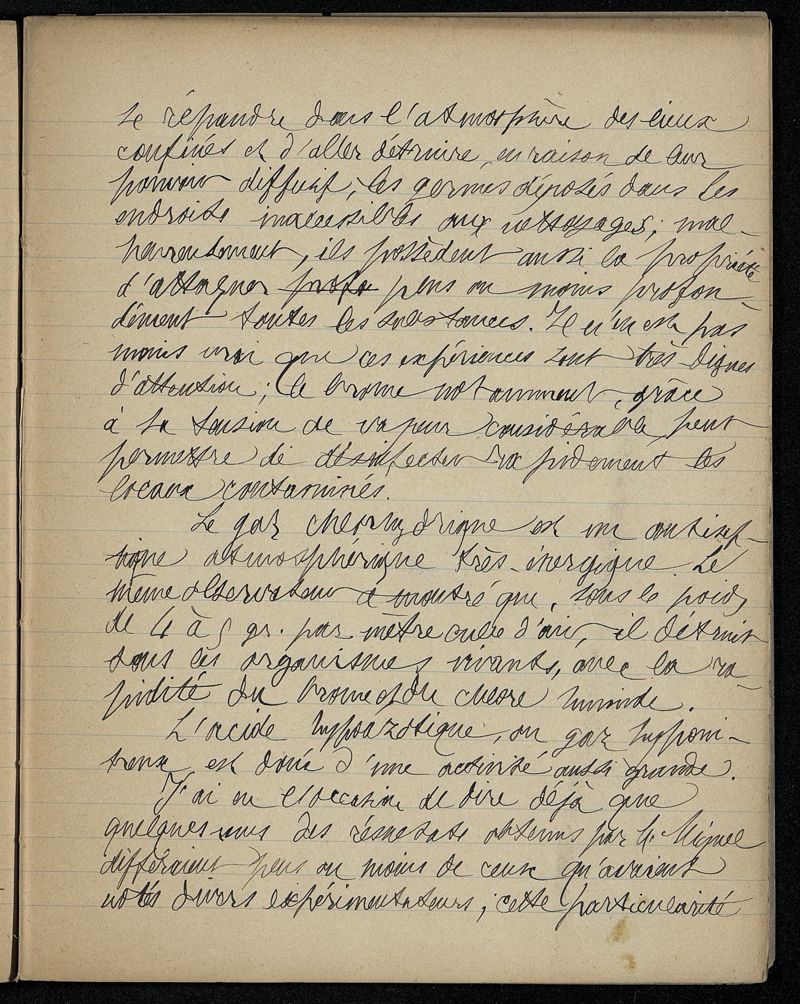 se répandre dans l'atmosphère des lieux
confinés et d'aller détruire, en raison de leur
pouvoir diffusif, les germes déposés dans les
endroits inaccessibles aux nettoyages; mal-
heureusement, ils possèdent aussi la propriété
d'attaquer profo peus ou moins profon-
dément toutes les substances. Il n'en est pas
moins vrai que ces expériences sont très dignes
d'attention; le brome notamment, grâce
à sa tension de vapeur considérable peut
permettre de désinfecter rapidement les
locaux contaminés.
Le gaz chlorhydrique est un antisep-
tique atmosphérique très énergique. Le
même observateur a montré que, sous le poids
de 4 à 5 gr. par mètre cube d'air, il détruit
tous les organismes vivants, avec la ra-
pidité du brome et du chlore humide.
L'acide hypoazotique, ou gaz hyponi-
treux est doué d'une activité aussi grande.
J'ai eu l'occasion de dire déjà que
quelques-uns des résultats obtenus par M. Miquel
différaient peus ou moins de ceux qu'avaient
notés divers expérimentateurs; cette particularité